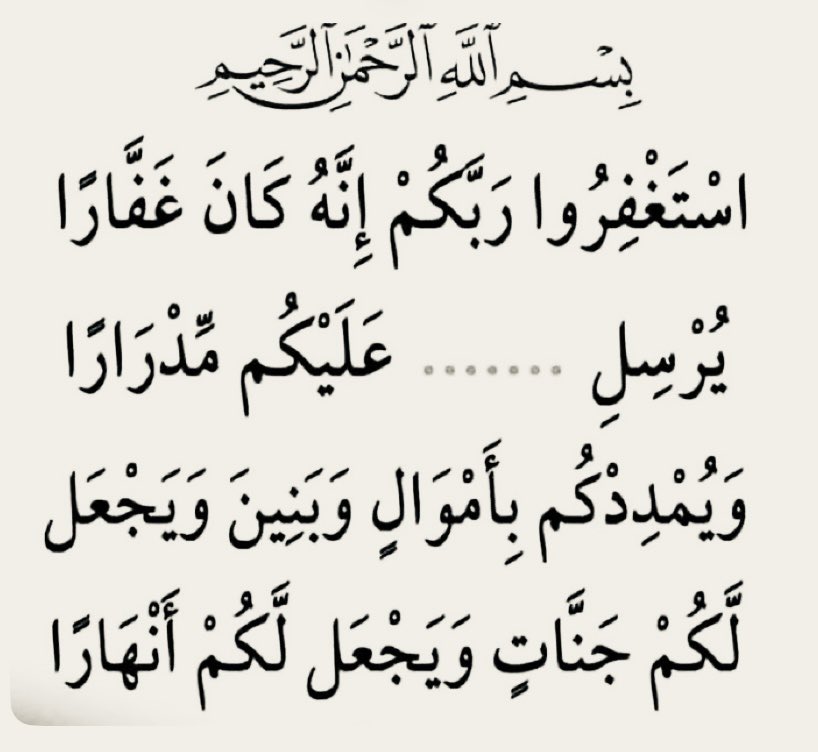 بِسْمِ ٱللَّهِ ٱلرَّحْمَٰنِ ٱلرَّحِيمِ
اسْتَغْفِرُوا رَبَّكُمْ إِنَّهُ كَانَ غَفَّارًا
يُرْسِلِ ....... عَلَيْكُم مِّدْرَارًا
وَيُمْدِدْكُم بِأَمْوَالٍ وَبَنِينَ وَيَجْعَل
لَّكُمْ جَنَّاتٍ وَيَجْعَل لَّكُمْ أَنْهَارًا